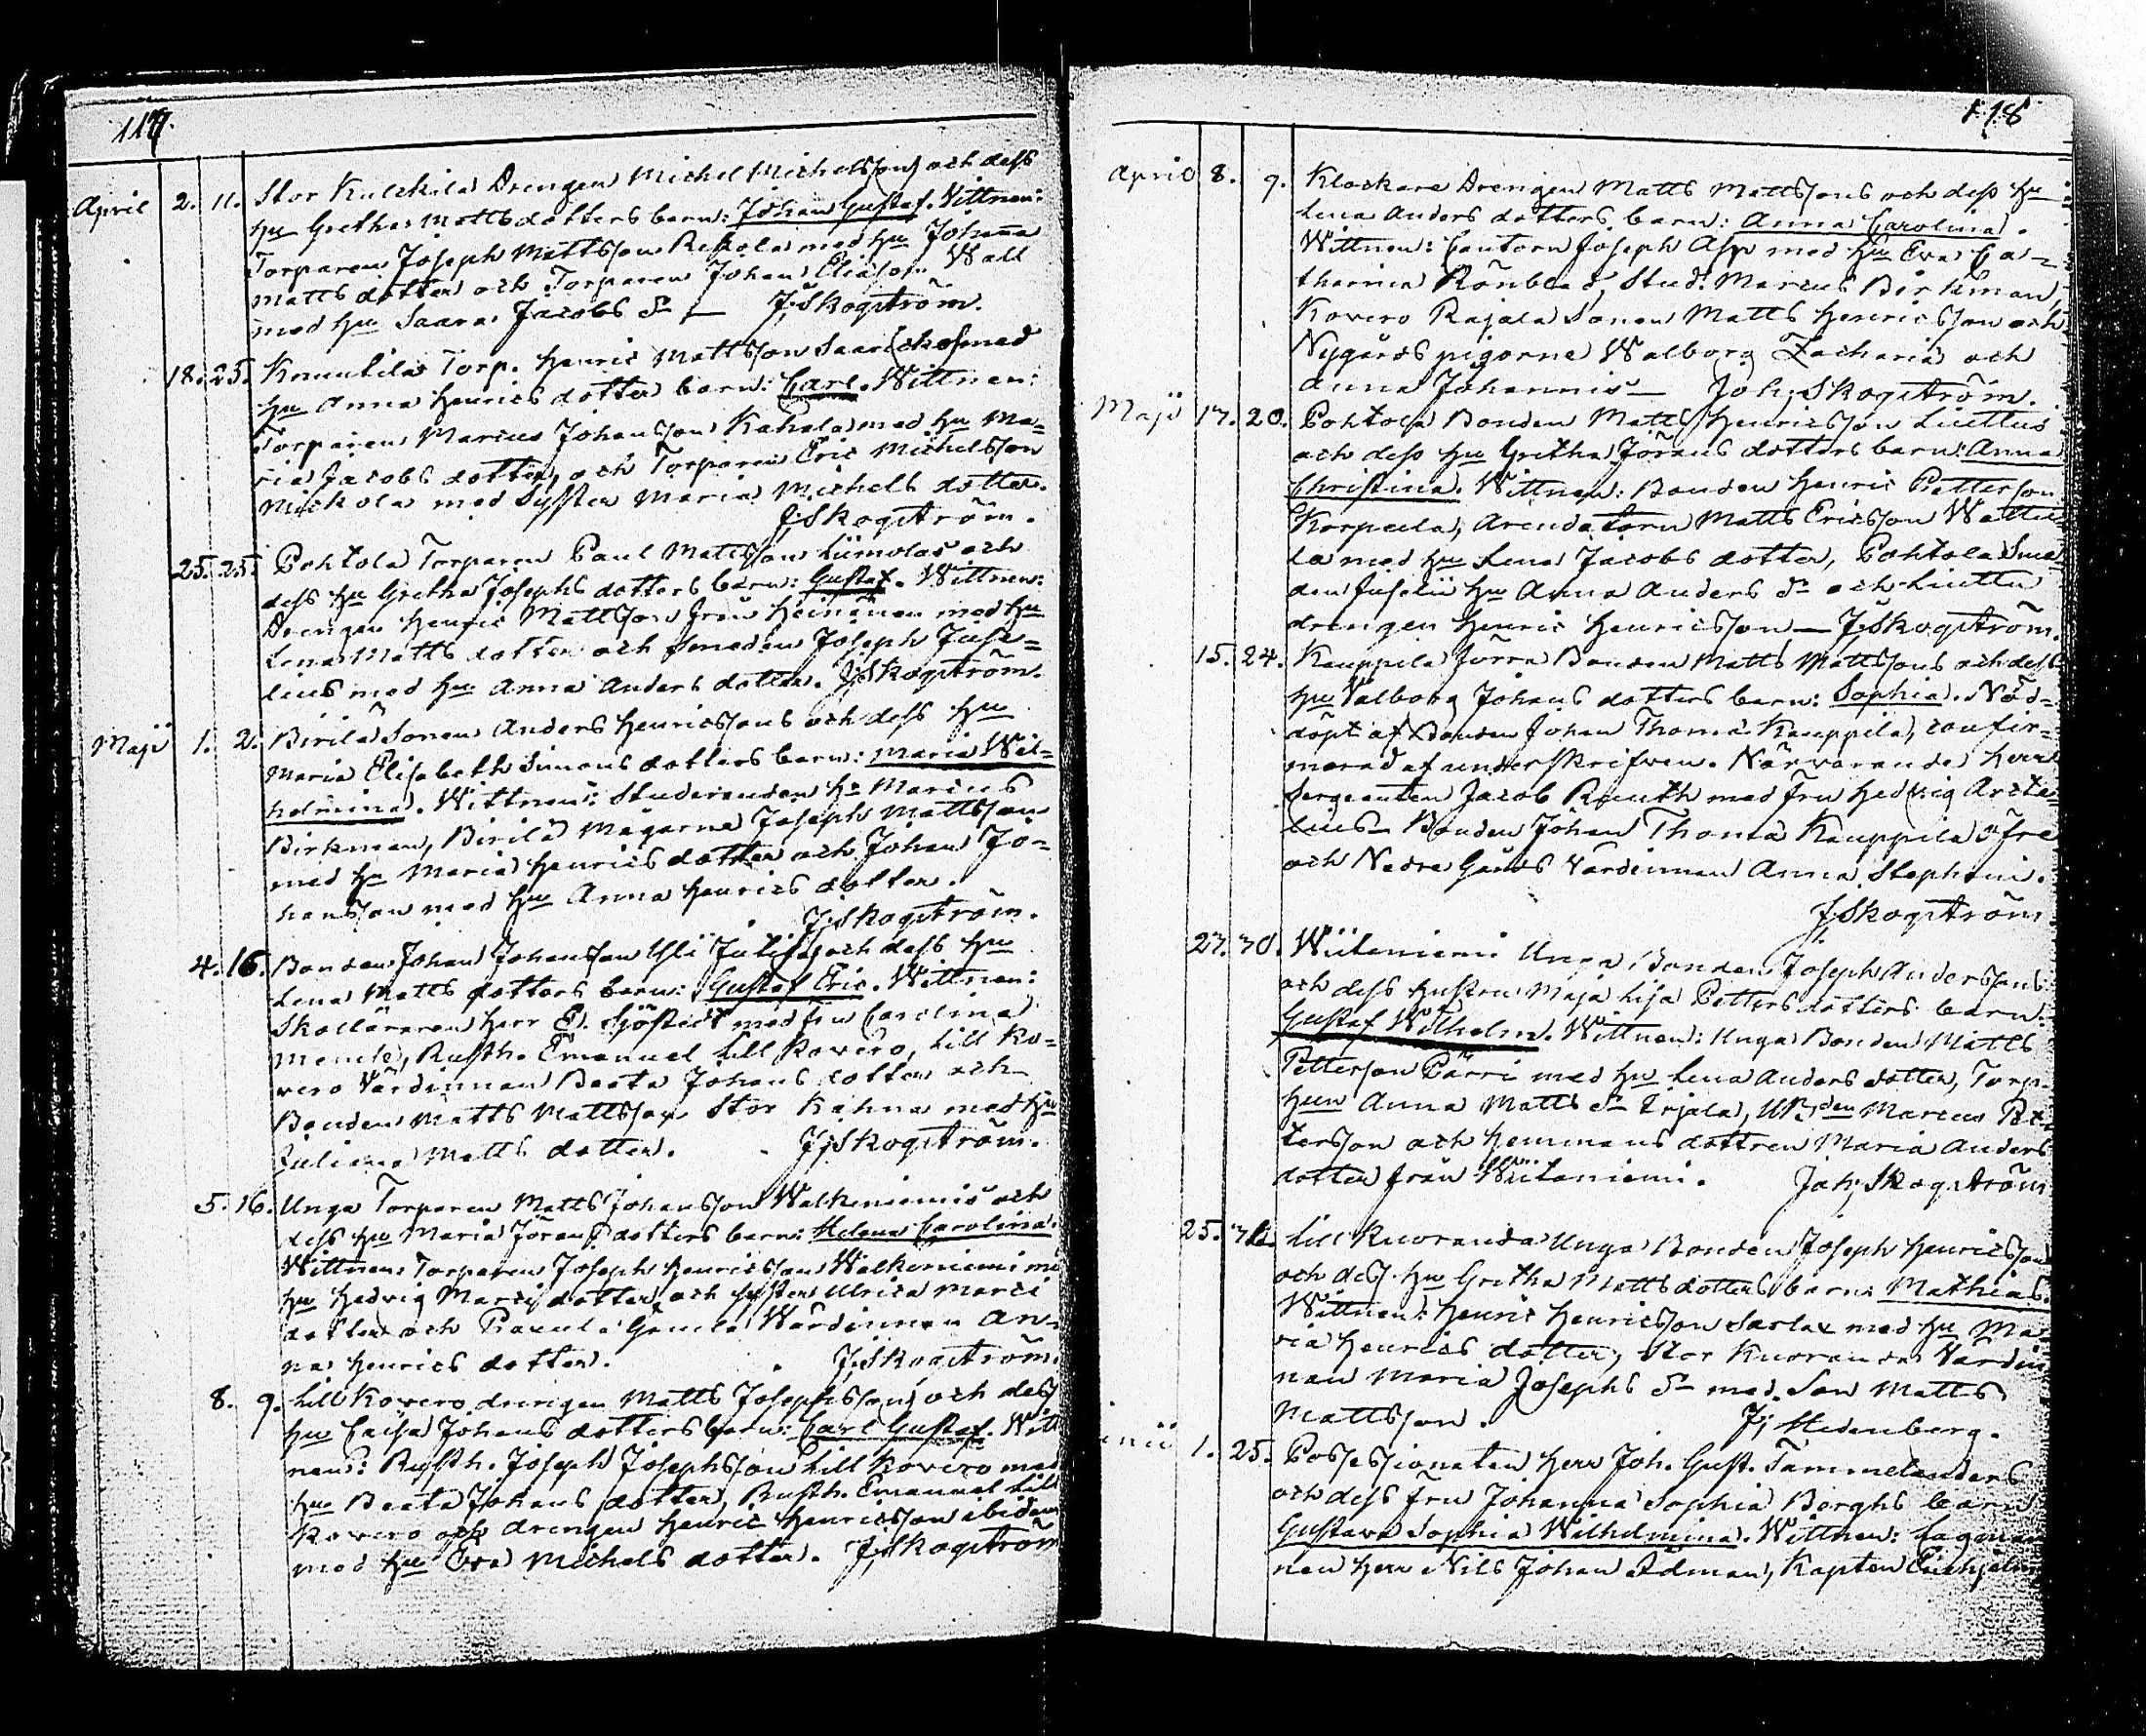 117.
April 2. 11. Stor Kulckila Drengen Michel Michelsson och dess
hu Gretha Mattsdotters barn: Johan Gustaf. Vittnen:
Torparen Joseph Mattsson Reskola med hu Johanna
Matts dotter och Torparen Johan Eliasson Wall
med hu Saara Jacobs dr — J. Skogström.
18. 25. Knuutila Torp. Henric Mattsson med
hu Anna Henrics dotter barn: Carl. Wittnen:
Torparen Marcus Johansson Kahala med hu Ma=
ria Jacobs dotter, och Torparen Eric Michelsson
med Syster Maria Michels dotter.
J. Skogström.
25. 25. Pohtola Torparen Paul Mattssons Liimolas och
dess hu Gretha Josephs dotters barn: Gustaf. Wittnen:
Drengen Henric Mattsson från Heinämen med hu
Lena Matts dotter och smeden Joseph Juse=
lius med hu Anna Anders dotter. J. Skogström.
Maji 1. 2. Birilä Sonen Anders Henricssons och dess hu
Maria Elisabeth Simons dotters barn: Maria Wil=
helmina. Wittnen: Studeranden Hr Marcus
Birkman, Birilä Mågarne Joseph Mattsson
med hu Maria Henrics dotter och Johan Jo=
hansson med hu Anna Henrics dotter.
J. Skogström.
4. 16. Bonden Johan Johansson Yli Jutila och dess hu
Lena Matts dotters barn: Gustaf Eric. Wittnen:
Skolläraren Herr E. Sjöstedt med fru Carolina
Rusth. Emanuel Lill Kovero, Lill Ko=
vero Värdinnan Beata Johans dotter och
Bonden Matts Mattsson Stor Kahna med hu
Juliana Matts dotter. J. Skogström.
5. 16. Unga Torparen Matts Johansson Walkeniemis och
dess hu Maria Jörans dotters barn: Helena Carolina.
Wittnen: Torparen Joseph Henricsson Walkeniemi me
hu Hedvig Marci dotter och syster Ulrica Marci
dotter och Gamla Wärdinnan An=
na Henrics dotter. J. Skogström.
8. 9. Lill Kovero drengen Matts Josephssons och dess
hu Caisa Johans dotters barn: Carl Gustaf. Witt
nen: Rusth. Joseph Josephsson Lill Kovero med
hu Beata Johans dotter, Rusth. Emanuel Lill
Kovero och drengen Henric Henricsson ibidem
med hu Eva Michels dotter. J. Skogström
118
April 8. 9. Klockare Drengen Matts Mattssons och dess hu
Lena Anders dotters barn: Anna Carolina.
Wittnen: Cantorn Joseph Asp med hu Eva Ca=
tharina Rönblad, Stud. Marcus Birkman,
Kovero Rajala Sonen Matts Henricsson och
Nygårds pigorne Walborg Zachariæ och
Anna Johannis — Joh. Skogström.
Maji 17. 20. Pohtola Bonden Matts Henricsson Liuttus
och dess hu Gretha Jörans dotters barn: Anna
Christina. Wittnen: Bonden Henric Petterson
Korpeela, Arendatorn Matts Ericsson Wattu=
la med hu Lena Jacobs dotter, Pohtola Sme=
den Juselii hu Anna Anders dr och Liuttu
drengen Henric Henricsson — J. Skogström.
15. 24. Kauppila Jurra Bonden Matts Mattssons och dess
hu Valborg Johans dotters barn: Sophia. Nöd=
döpt af Bonden Johan Thomæ Kauppila, confir=
merad af underskrifven. Närvarande Herr
Sergeanten Jacob Reuth med fru Hedvig Arcte=
lius — Bonden Johan Thomæ Kauppila Öfre
och Nedre Gårds Värdinnan Anna Stephani.
J. Skogström.
27. 30. Wiitaniemi Unga Bonden Joseph Anderssons
och dess hustru Maja Lisa Petters dotters barn:
Gustaf Wilhelm. Wittnen: Unga Bonden Matts
Petterson Pärri med hu Lena Anders dotter, Torp.
hun Anna Matts dr Irjala, Marcus Pet=
tersson och Hemmans dottren Maria Anders
dotter från Wiitaniemi. Joh. Skogström
25. 31. Lill Kuoranda Unga Bonden Joseph Henricsson
och dess hu Gretha Matts dotters barn: Mathias.
Wittnen: Henric Henricsson Sarlax med hu Ma=
ria Henrics dotter, Stor Kuoranda Värdin
nan Maria Josephs dr med Son Matts
Mattsson. J. Hedenberg.
unii 1. 25. Possessionaten Herr Joh. Gust. Tammelanders
och dess fru Johanna Sophia Berghs barn
Gustava Sophia Wilhelmina. Wittnen:
nen Herr Nils Johan Ådman, Kapten Ehrhjelm